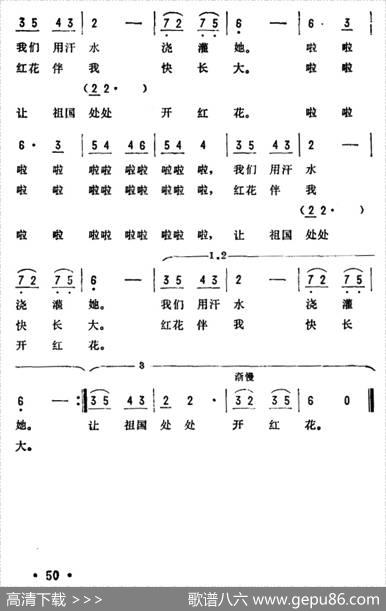 3 5 4 3 | 2 — | 7 2 7 5 | 6 — | 6 · 3 |
我们 用汗 水 浇 灌 她。 啦 啦
红花 伴 我 快 长 大。 啦 啦
(2 2 · )
让 祖国 处处 开 红 花。 啦 啦
6 · 3 | 5 4 4 6 | 5 4 4 | 3 5 4 3 | 2 — |
啦 啦 啦啦 啦啦 啦啦 啦, 我们 用汗 水
啦 啦 啦啦 啦啦 啦啦 啦, 红花 伴 我
(2 2 · )
啦 啦 啦啦 啦啦 啦啦 啦, 让 祖国 处处
1.2
7 2 7 5 | 6 — | 3 5 4 3 | 2 — | 7 2 7 5 |
浇 灌 她。 我们 用汗 水 浇 灌
快 长 大。 红花 伴 我 快 长
开 红 花。
3
渐慢
6 — :‖ 3 5 4 3 | 2 2 · | 3 2 3 5 | 6 0 ‖
她。 让 祖国 处 处 开 红 花。
大。
· 50 ·
高清下载 >>> 歌谱八六 www.gepu86.com